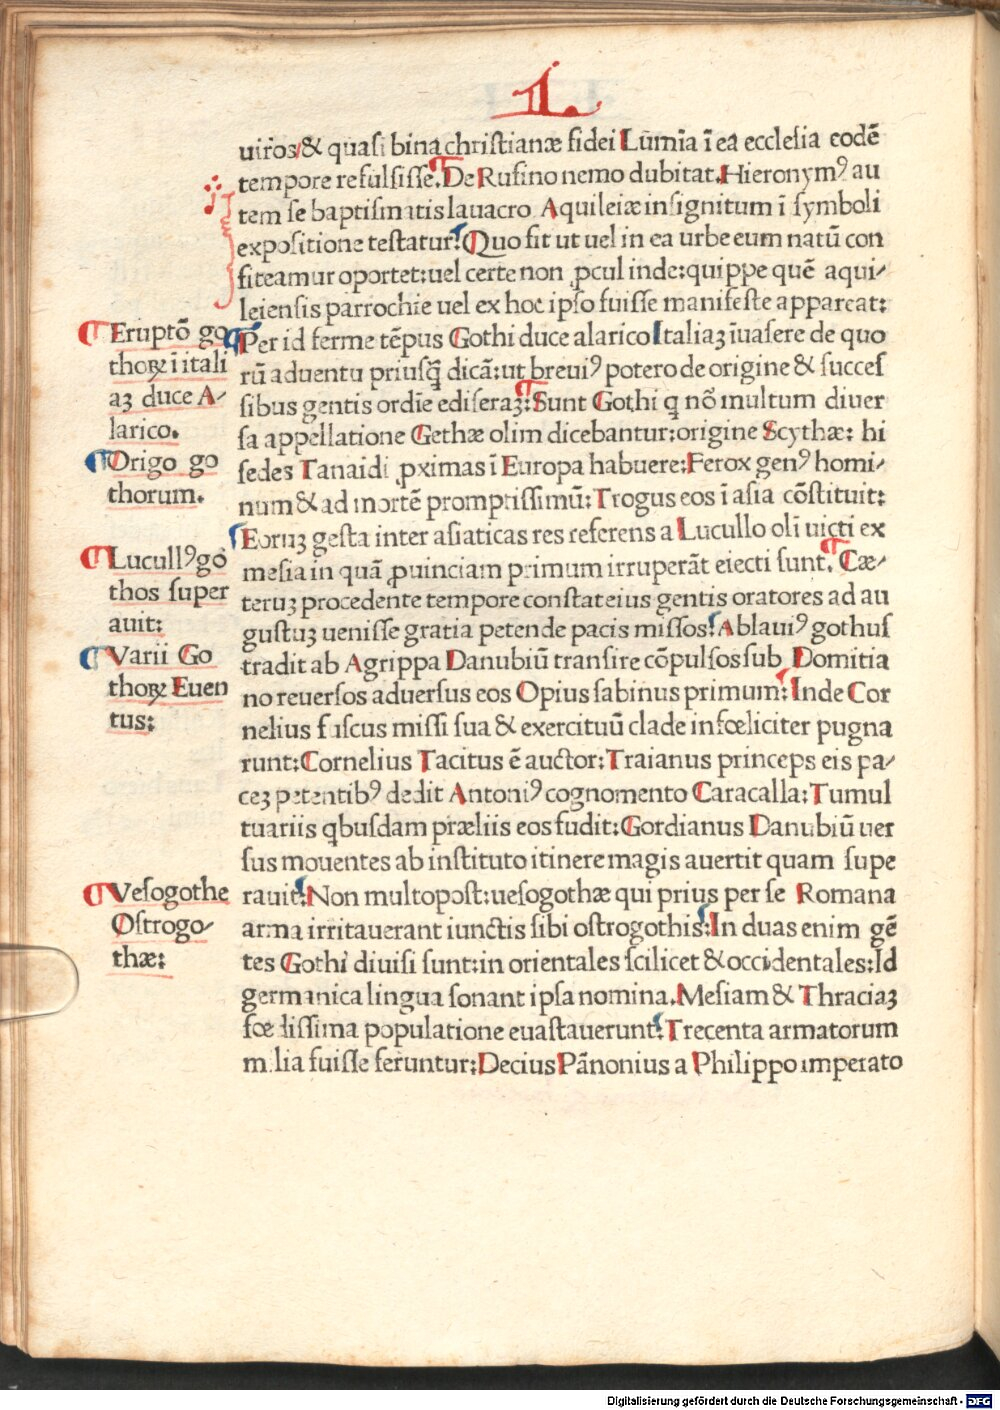 .L.
uiros/& quasi bina christianæ fidei Lumīa ī ea ecclesia eodē
tempore refulsisse. De Rufino nemo dubitat. Hieronymꝰ au
tem se baptismatis lauacro Aquileiæ insignitum ī symboli
expositione testatur: Quo fit ut uel in ea urbe eum natū con
fiteamur oportet: uel certe non ꝓcul inde: quippe quē aqui/
leiensis parrochie uel ex hoc ipso fuisse manifeste appareat:
Per id ferme tēpus Gothi duce alarico Italiaꝫ īuasere de quo
rū aduentu priusq̄ dicā: ut breuiꝰ potero de origine & succes
sibus gentis ordīe ediseraꝫ: Sunt Gothi q nō multum diuer
sa appellatione Gethæ olim dicebantur: origine Scythæ: hi
sedes Tanaidi ꝓximas ī Europa habuere: Ferox genꝰ homi/
num & ad mortē promptissimū: Trogus eos ī asia cōstituit:
Eoruꝫ gesta inter asiaticas res referens a Lucullo oli uicti ex
mesia in quā ꝓuinciam primum irruperāt eiecti sunt. Cæ/
teruꝫ procedente tempore constat eius gentis oratores ad au
gustuꝫ uenisse gratia petende pacis missos: Ablauiꝰ gothus
tradit ab Agrippa Danubiū transire cōpulsos sub Domitia
no reuersos aduersus eos Opius sabinus primum: Inde Cor
nelius fuscus missi sua & exercituū clade infœliciter pugna
runt: Cornelius Tacitus ē auctor: Traianus princeps eis pa/
ceꝫ petentibꝰ dedit Antoniꝰ cognomento Caracalla: Tumul
tuariis qbusdam præliis eos fudit: Gordianus Danubiū uer
sus mouentes ab instituto itinere magis auertit quam supe
rauit: Non multo post: uesogothæ qui prius per se Romana
arma irritauerant iunctis sibi ostrogothis: In duas enim gē
tes Gothi diuisi sunt: in orientales scilicet & occidentales: Id
germanica lingua sonant ipsa nomina. Mesiam & Thraciaꝫ
fœdissima populatione euastauerunt: Trecenta armatorum
milia fuisse feruntur: Decius Pānonius a Philippo imperato
Eruptō go
thoꝝ ī itali
aꝫ duce A/
larico.
Origo go
thorum.
Lucullꝰ go
thos super
auit:
Varii Go
thoꝝ Euen
tus:
Vesogothe
Ostrogo/
thæ:
Digitalisierung gefördert durch die Deutsche Forschungsgemeinschaft - DFG